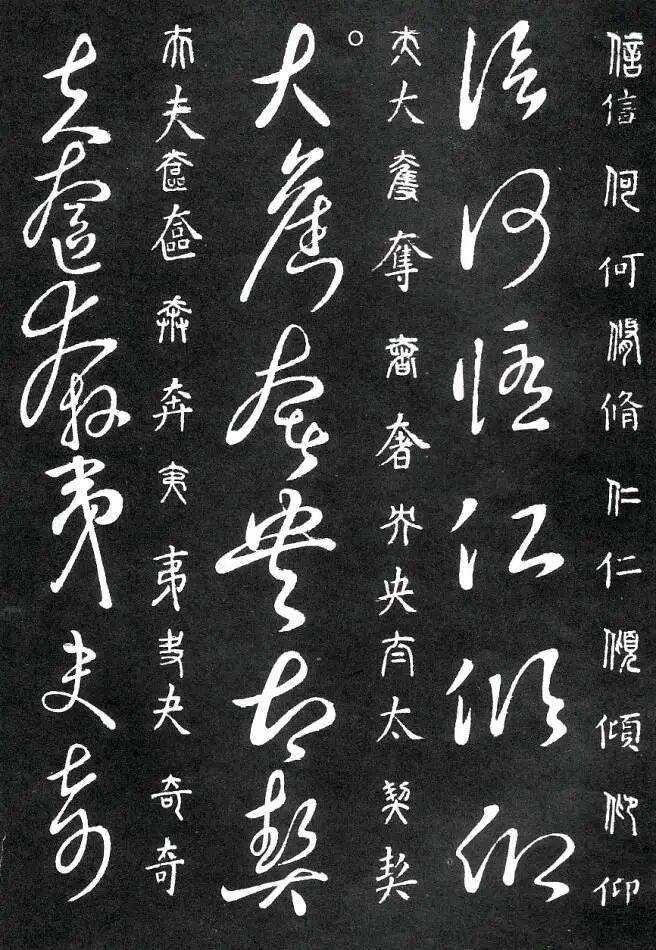 信信何何脩脩仁仁傾傾仰仰
信何脩仁傾仰
大大奪奪奢奢央央太太契契
○大奪奢央太契
夫夫奩奩奔奔夷夷夬夬奇奇
夫奩奔夷夬奇